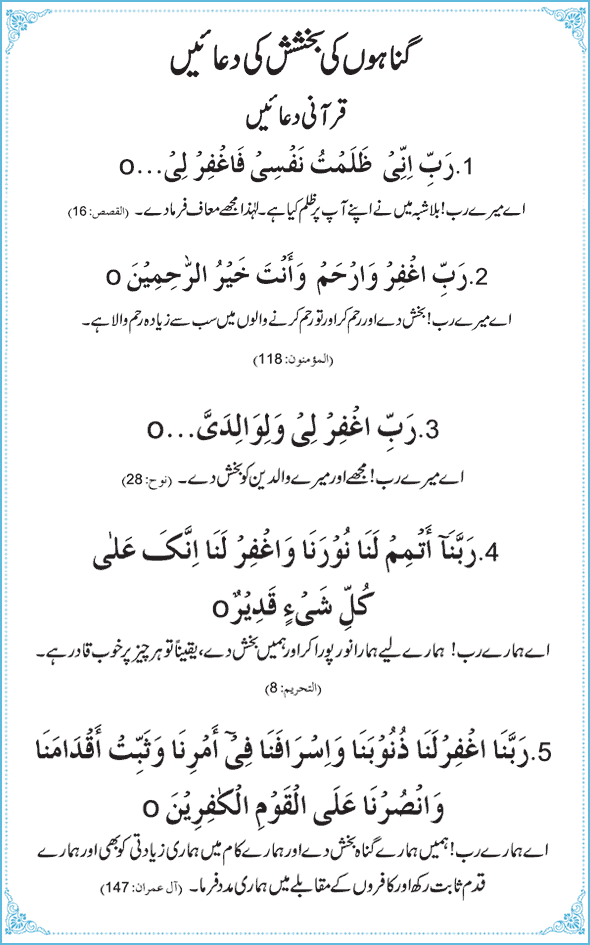 گناہوں کی بخشش کی دعائیں
قرآنی دعائیں
1. رَبِّ اِنِّیْ ظَلَمْتُ نَفْسِیْ فَاغْفِرْ لِیْ...o
اے میرے رب! بلاشبہ میں نے اپنے آپ پر ظلم کیا ہے۔ لہٰذا مجھے معاف فرما دے۔ (القصص: 16)
2. رَبِّ اغْفِرْ وَارْحَمْ وَأَنْتَ خَیْرُ الرّٰحِمِیْنَ o
اے میرے رب! بخش دے اور رحم کر اور تو رحم کرنے والوں میں سب سے زیادہ رحم والا ہے۔
(المؤمنون: 118)
3. رَبِّ اغْفِرْ لِیْ وَلِوَالِدَیَّ...o
اے میرے رب! مجھے اور میرے والدین کو بخش دے۔ (نوح: 28)
4. رَبَّنَآ أَتْمِمْ لَنَا نُوْرَنَا وَاغْفِرْ لَنَا اِنَّکَ عَلٰی
کُلِّ شَیْءٍ قَدِیْرٌ o
اے ہمارے رب! ہمارے لیے ہمارا نور پورا کر اور ہمیں بخش دے، یقیناً تو ہر چیز پر خوب قادر ہے۔
(التحریم: 8)
5. رَبَّنَا اغْفِرْلَنَا ذُنُوْبَنَا وَاِسْرَافَنَا فِیْٓ أَمْرِنَا وَثَبِّتْ أَقْدَامَنَا
وَانْصُرْنَا عَلَی الْقَوْمِ الْکٰفِرِیْنَ o
اے ہمارے رب! ہمیں ہمارے گناہ بخش دے اور ہمارے کام میں ہماری زیادتی کو بھی اور ہمارے
قدم ثابت رکھ اور کافروں کے مقابلے میں ہماری مدد فرما۔ (آل عمران: 147)